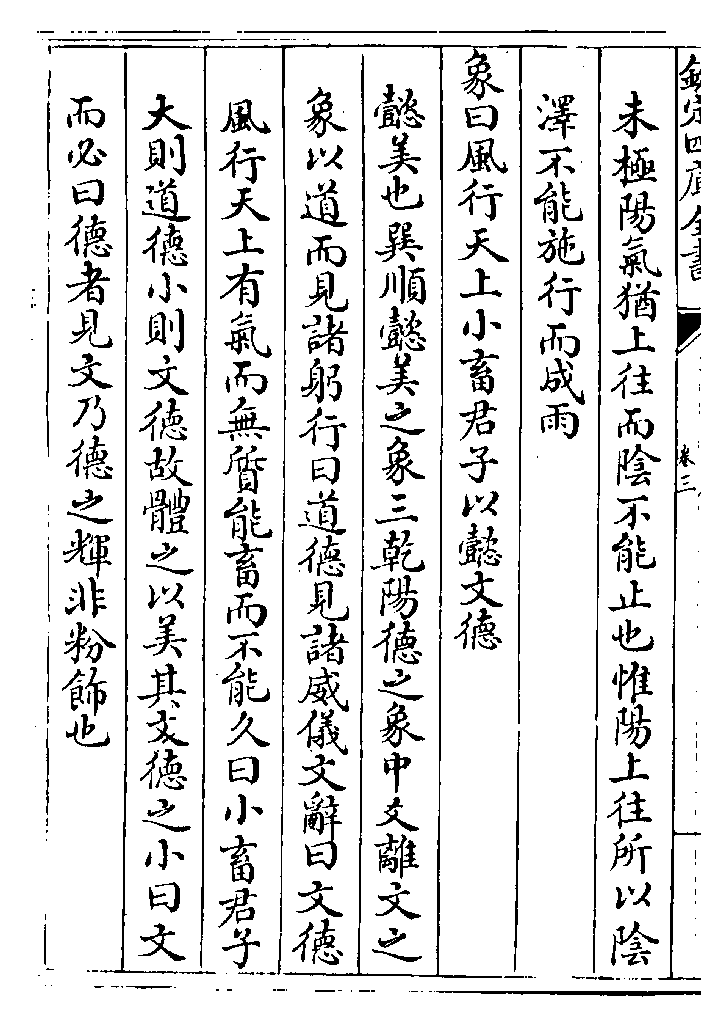 欽定四庫全書
卷三
未極陽氣猶上往而陰不能止也惟陽上往所以陰
澤不能施行而成雨
象曰風行天上小畜君子以懿文德
懿美也巽順懿美之象三乾陽德之象中爻離文之
象以道而見諸躬行曰道德見諸威儀文辭曰文德
風行天上有氣而無質能畜而不能久曰小畜君子
大則道德小則文德故體之以美其文德之小曰文
而必曰德者見文乃德之輝非粉飾也